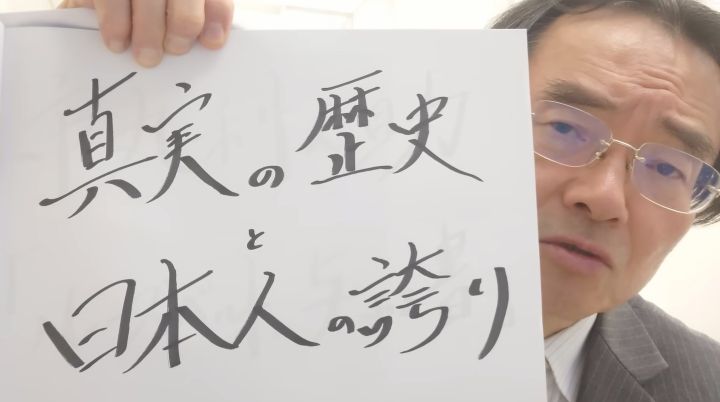 真実の歴史
と
日本人の誇り